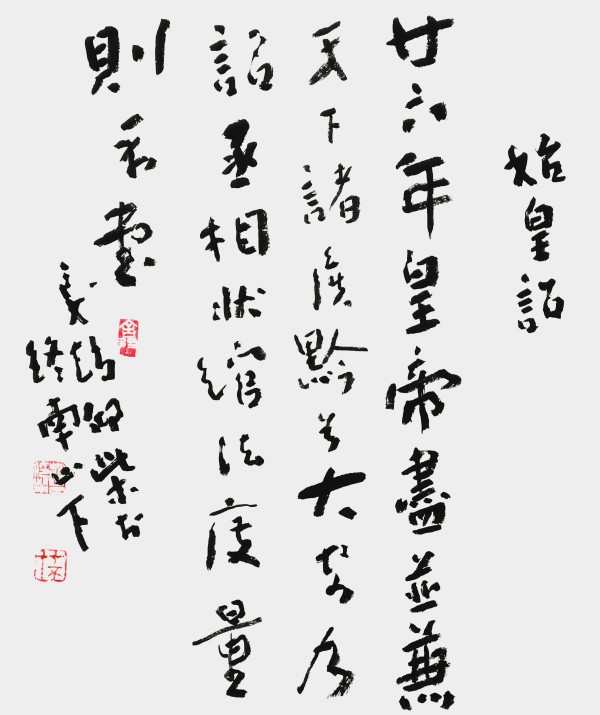 始皇詔
廿六年皇帝盡並兼
天下諸侯黔首大安為
詔丞相狀綰法度量
則不壹
終南山下